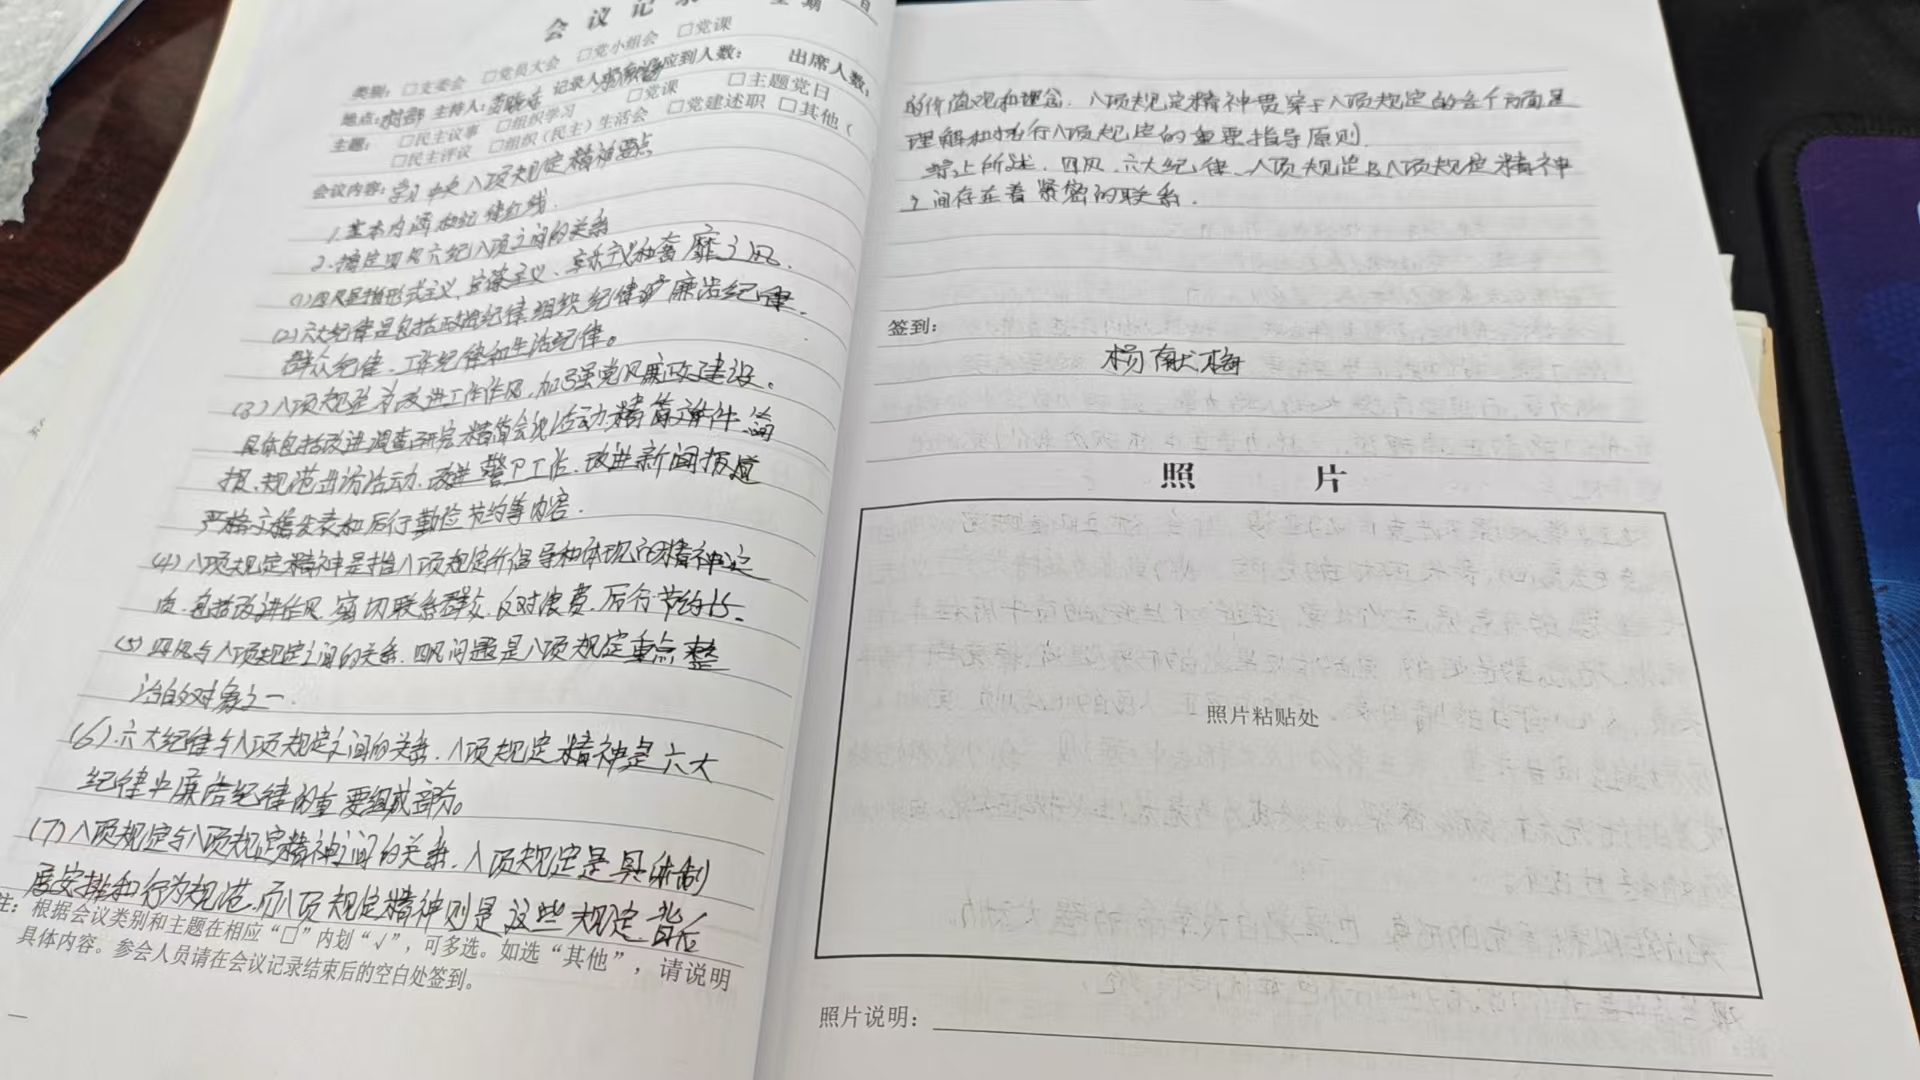 会议记录
星期 日
类别：□支委会 □党员大会 □党小组会 □党课
地点：村部 主持人： 记录人： 应到人数： 出席人数：
主题：□民主议事 □组织学习 □党课 □主题党日
□民主评议 □组织（民主）生活会 □党建述职 □其他（
会议内容：学习中央八项规定精神要点
1.基本内涵和纪律红线.
2.搞定四风六纪八项之间的关系
(1)四风是指形式主义、官僚主义、享乐主义和奢靡之风.
(2)六大纪律是包括政治纪律 组织纪律 廉洁纪律.
群众纪律、工作纪律和生活纪律。
(3)八项规定为改进工作作风,加强党风廉政建设。
具体包括改进调查研究 精简会议活动.精简文件 简
报、规范出访活动.改进警卫工作、改进新闻报道
严格文稿发表和厉行勤俭节约等内容.
(4)八项规定精神是指八项规定所倡导和体现的精神
质.包括改进作风、密切联系群众、反对浪费、厉行节约
(5)四风与八项规定之间的关系.四风问题是八项规定重点整
治的对象之一.
(6).六大纪律与八项规定之间的关系.八项规定精神是六大
纪律中廉洁纪律的重要组成部分。
(7)八项规定与八项规定精神之间的关系.八项规定是具体制
度安排和行为规范.而八项规定精神则是这些规定背后
注：根据会议类别和主题在相应“□”内划“√”，可多选。如选“其他”，请说明
具体内容。参会人员请在会议记录结束后的空白处签到。
的价值观和理念.八项规定精神贯穿于八项规定的各个方面是
理解和执行八项规定的重要指导原则.
综上所述.四风.六大纪律、八项规定及八项规定精神
之间存在着紧密的联系.
签到：
杨献梅
照 片
照片粘贴处
照片说明：